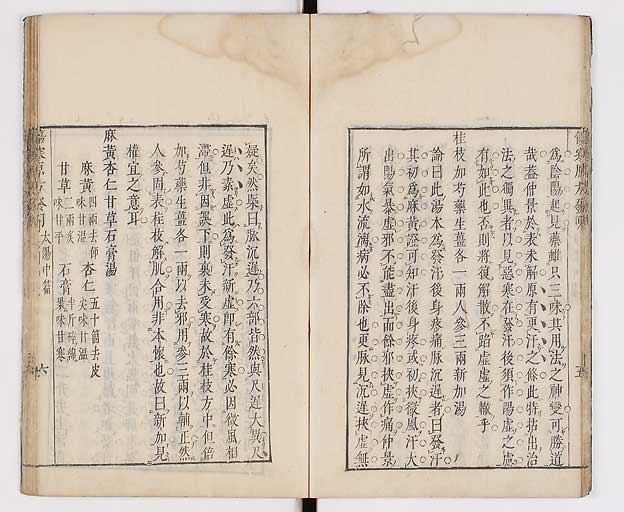 為陰陽起見藥雖只三味其用法之神變可勝道
哉蓋仲景於表未解原有更汗之條此特拈出治
法之獨異者以見惡寒在發汗後須作陽虛之慮
有如此也否則將復解散不蹈虛虛之轍乎
桂枝加芍藥生薑各一兩人參三兩新加湯
論曰此湯本為發汗後身疼痛脉沉遲者曰發汗
其初為麻黃證可知汗後身疼或初挾微風汗大
出陽氣暴虛邪不能盡出而餘邪挾虛作痛仲景
所謂如水流漓病必不除也更脉見沉遲挾虛無
疑矣然柴曰脉沉遲乃六部皆然與尺遲大異尺
遲乃素虛此為發汗新虛即有餘寒必因微風相
滯但非因誤下則裏未受寒故於桂枝方中但倍
加芍藥生薑各一兩以去邪用參三兩以輔正然
人參固表桂枝解肌合用非本懷也故曰新加見
權宜之意耳
麻黃杏仁甘草石膏湯
麻黃 四兩去節 味甘溫 杏仁 五十箇去皮尖味甘溫
甘草 二兩炙 味甘平 石膏 半斤碎綿裹味甘寒
太陽中篇
六
五